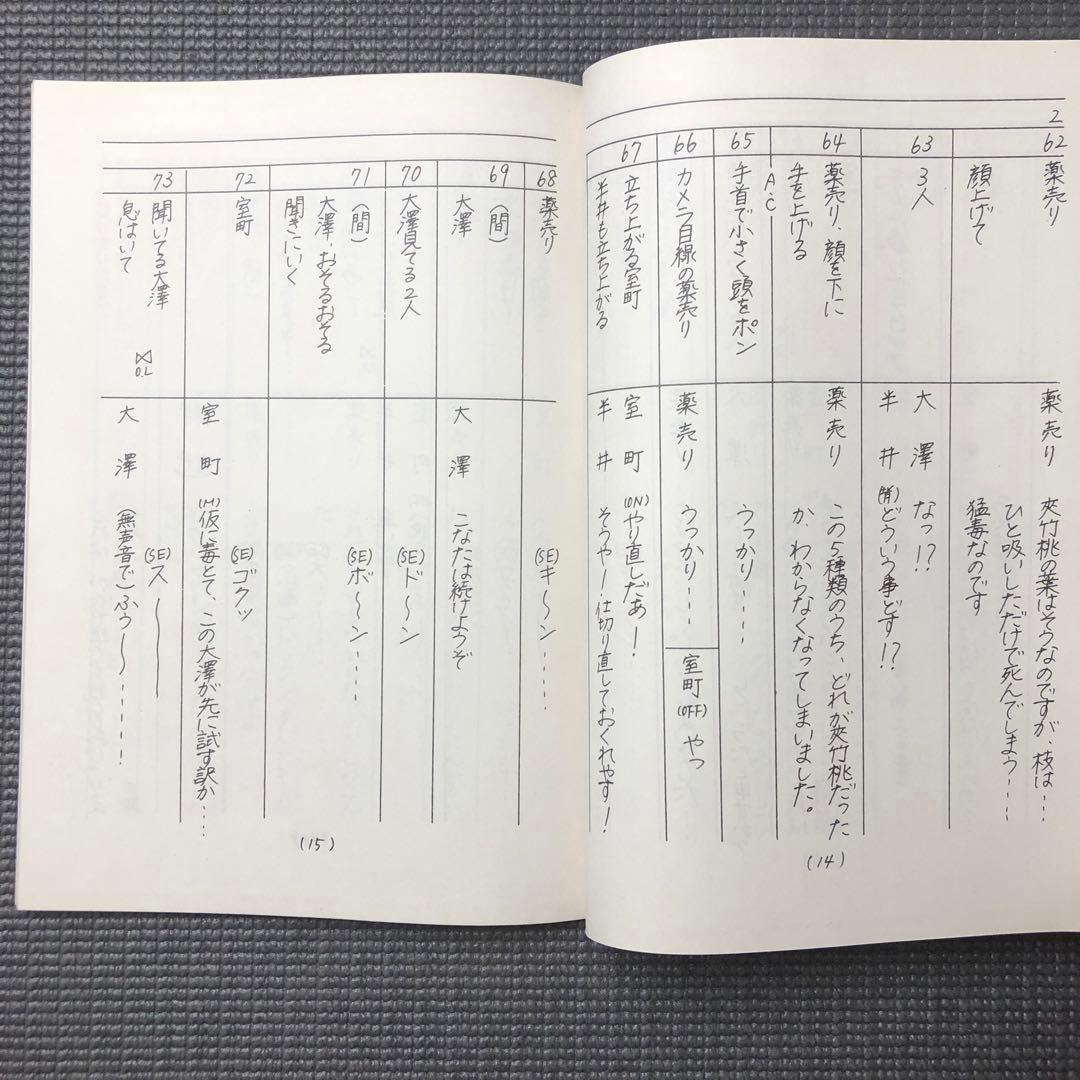 2
62
薬売り
顔上げて
薬売り 夾竹桃の葉はそうなのですが、枝は…
ひと吸いしただけで死んでしまう‥‥
猛毒なのです
63
3人
大澤 なっ!?
半井 どういう事どす!?
64
薬売り、顔を下に
手を上げる
A.C
薬売り この5種類のうち、どれが夾竹桃だった
か、わからなくなってしまいました。
65
手首で小さく頭をポン
うっかり‥‥
66
カメラ目線の薬売り
薬売り うっかり‥‥
室町(OFF) やっ
67
立ち上がる室町
半井も立ち上がる
室町 (ON)やり直しだぁー!
半井 そうやー!仕切り直しておくれやす!
(14)
68
薬売り
(SE)キ〜ン‥‥
69
(間)
大澤
大澤 こなたは続けようぞ
70
大澤見てる2人
(SE)ド〜ン
71
(間)
大澤、おそるおそる
聞きにいく
(SE)ボ〜ン‥‥
72
室町
(SE)ゴクッ
室町 (M)仮に毒とて、この大澤が先に試す訳か‥‥
73
聞いてる大澤
息はいて
O.L
(SE)ス〜
大澤 (無声音で)ふぅ〜‥‥‥!
(15)